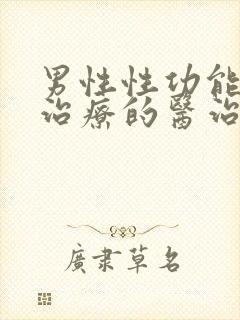 男性性功能
治療的醫治
廣肅草名